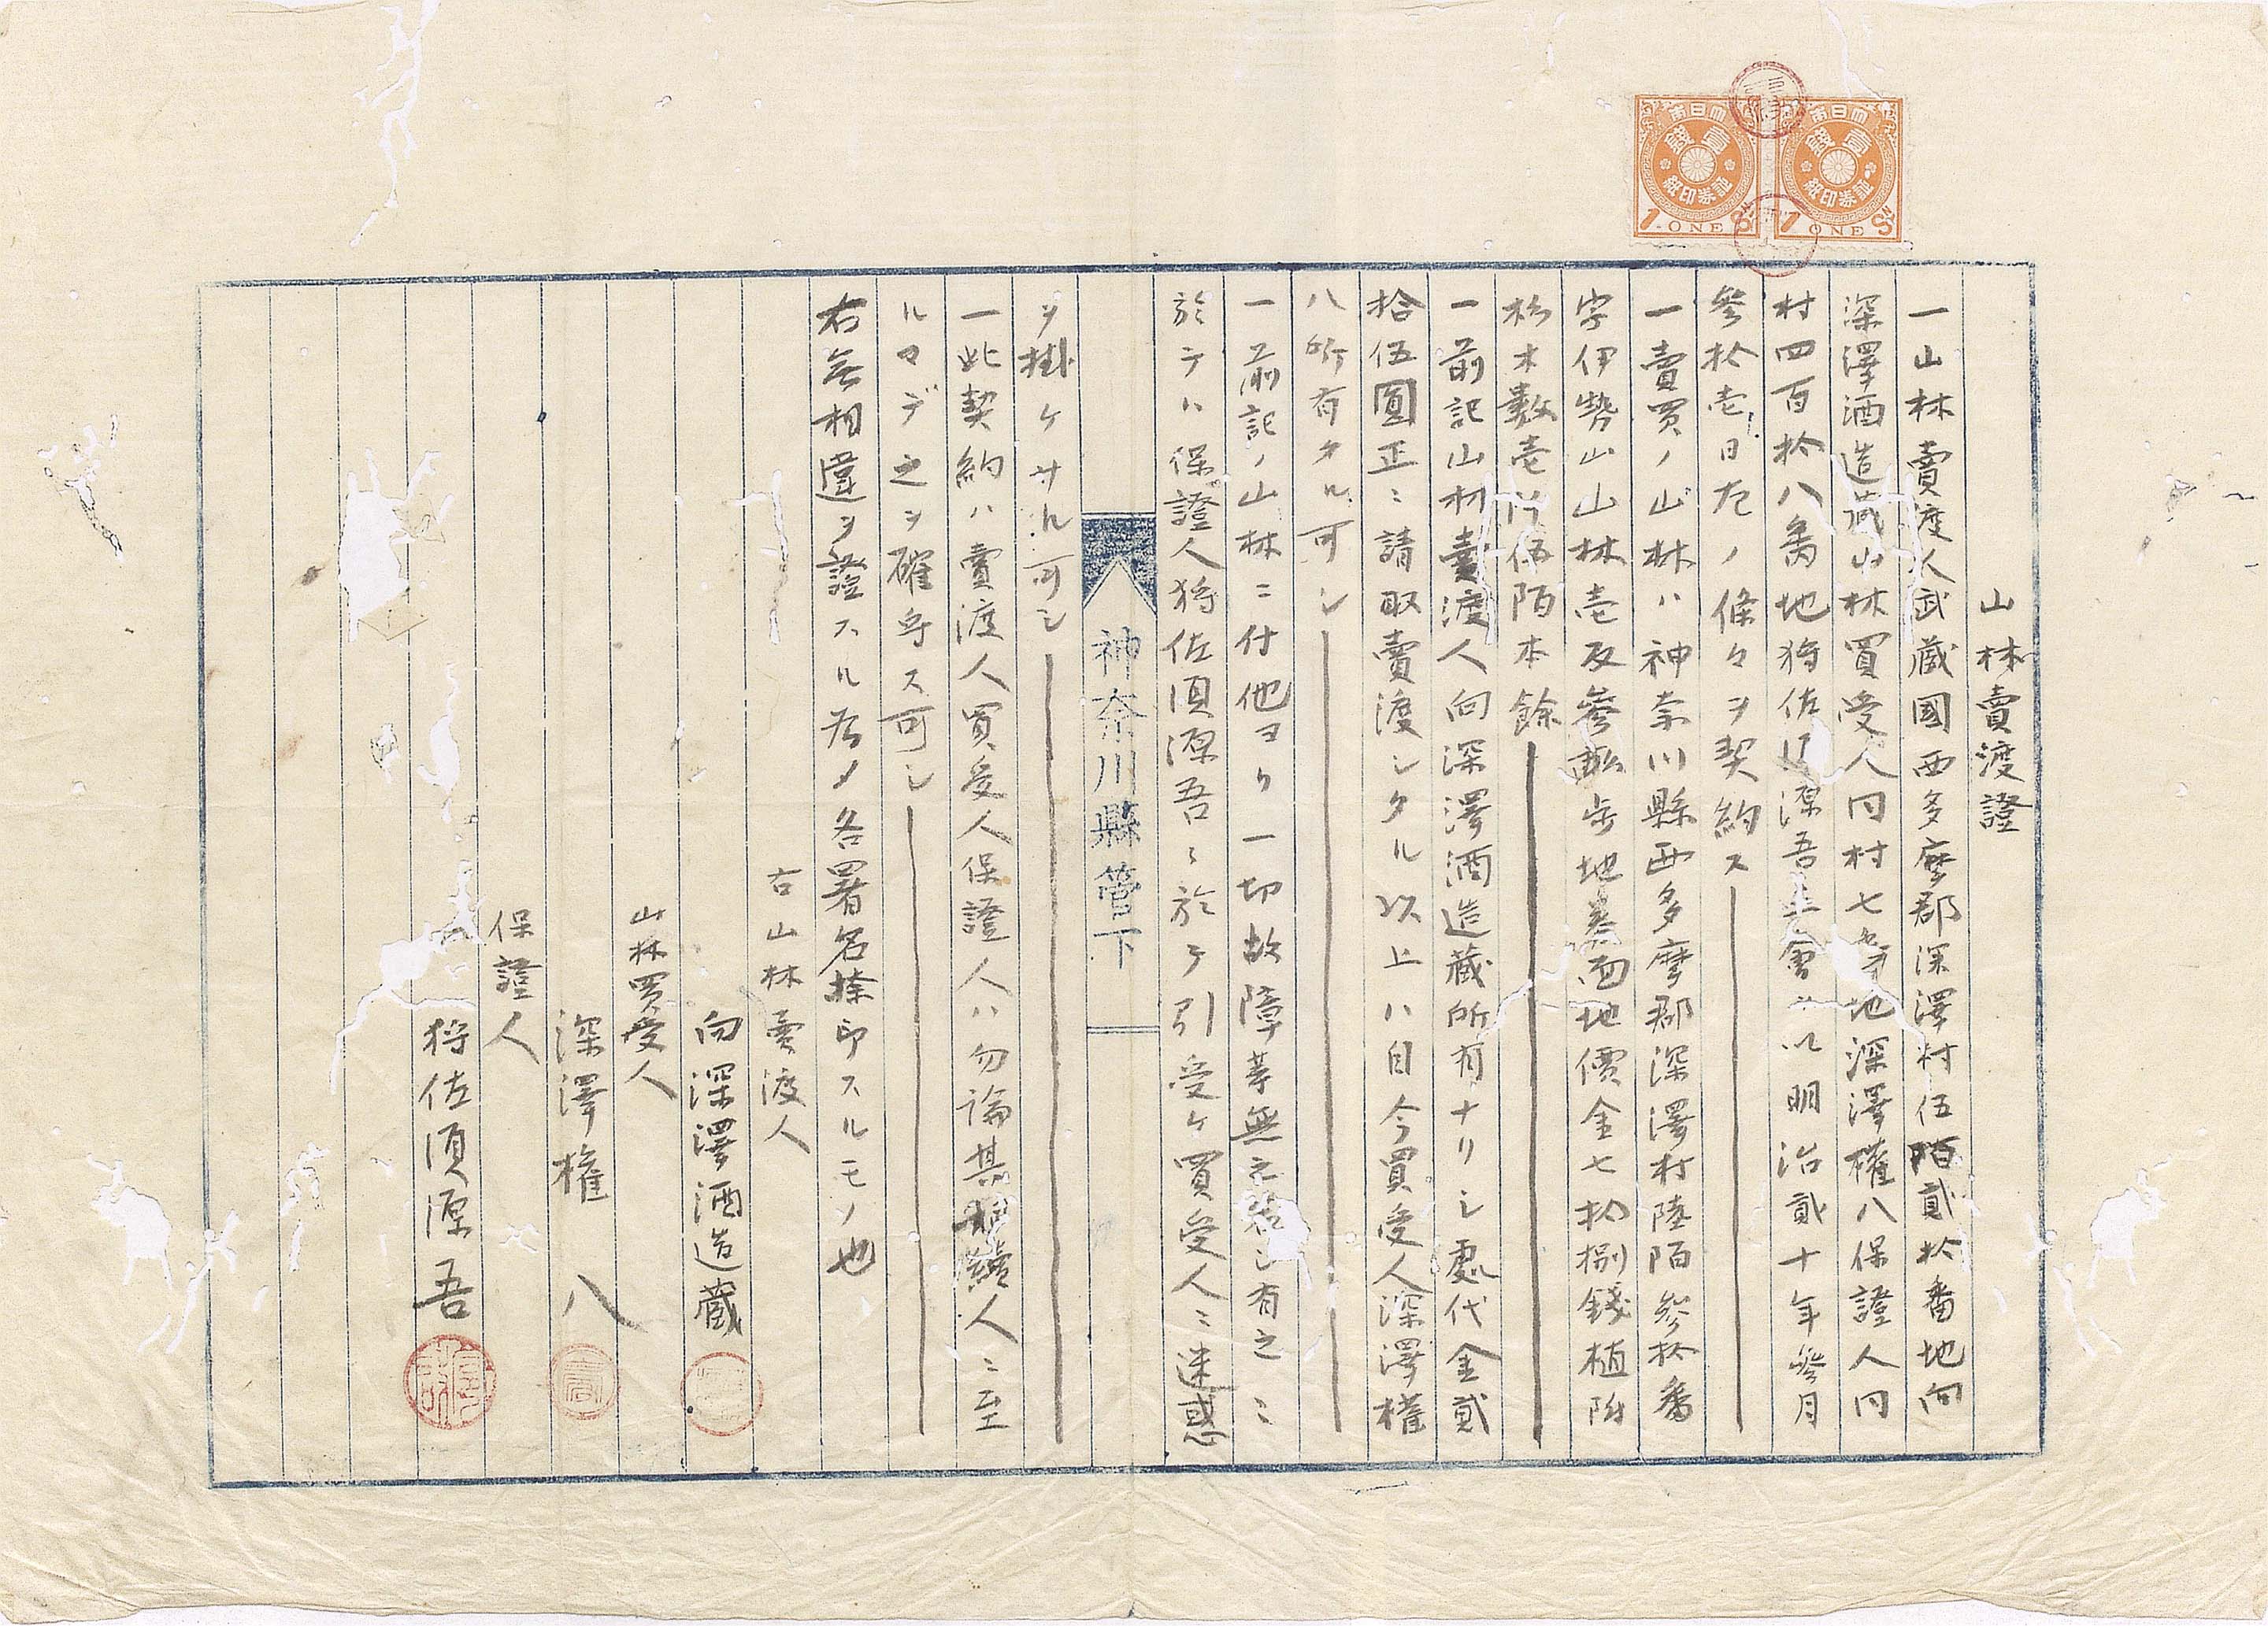 山林賣渡證
一山林賣渡人武蔵國西多摩郡深澤村伍陌貳拾番地向
深澤酒造蔵山林買受人同村七番地深澤権八保證人同
村四百拾八番地狩佐須源吾立會ヲ以明治貳十年参月
参拾壱日左ノ條々ヲ契約ス
一賣買ノ山林ハ神奈川縣西多摩郡深澤村陸陌参拾番
字伊勢山山林壱反参畝歩地券面地價金七拾捌錢植附
杉木数壱阡伍陌本餘
一前記山林賣渡人向深澤酒造蔵所有ナリシ處代金貳
拾伍圓正ニ請取賣渡シタル以上ハ自今買受人深澤権
八所有タル可シ
一前記ノ山林ニ付他ヨリ一切故障等無之若シ有之ニ
於テハ保證人狩佐須源吾ニ於テ引受ケ買受人ニ迷惑
ヲ掛ケサル可シ
一此契約ハ賣渡人買受人保證人ハ勿論其相續人ニ至
ルマデ之ヲ確守ス可シ
右無相違ヲ證スル為メ各署名捺印スルモノ也
右山林賣渡人
向深澤酒造蔵
山林買受人
深澤権八
保證人
狩佐須源吾
神奈川縣管下
大日本帝
壹錢
証券印紙
1 ONE S
大日本帝
壹錢
証券印紙
1 ONE Sⁿ